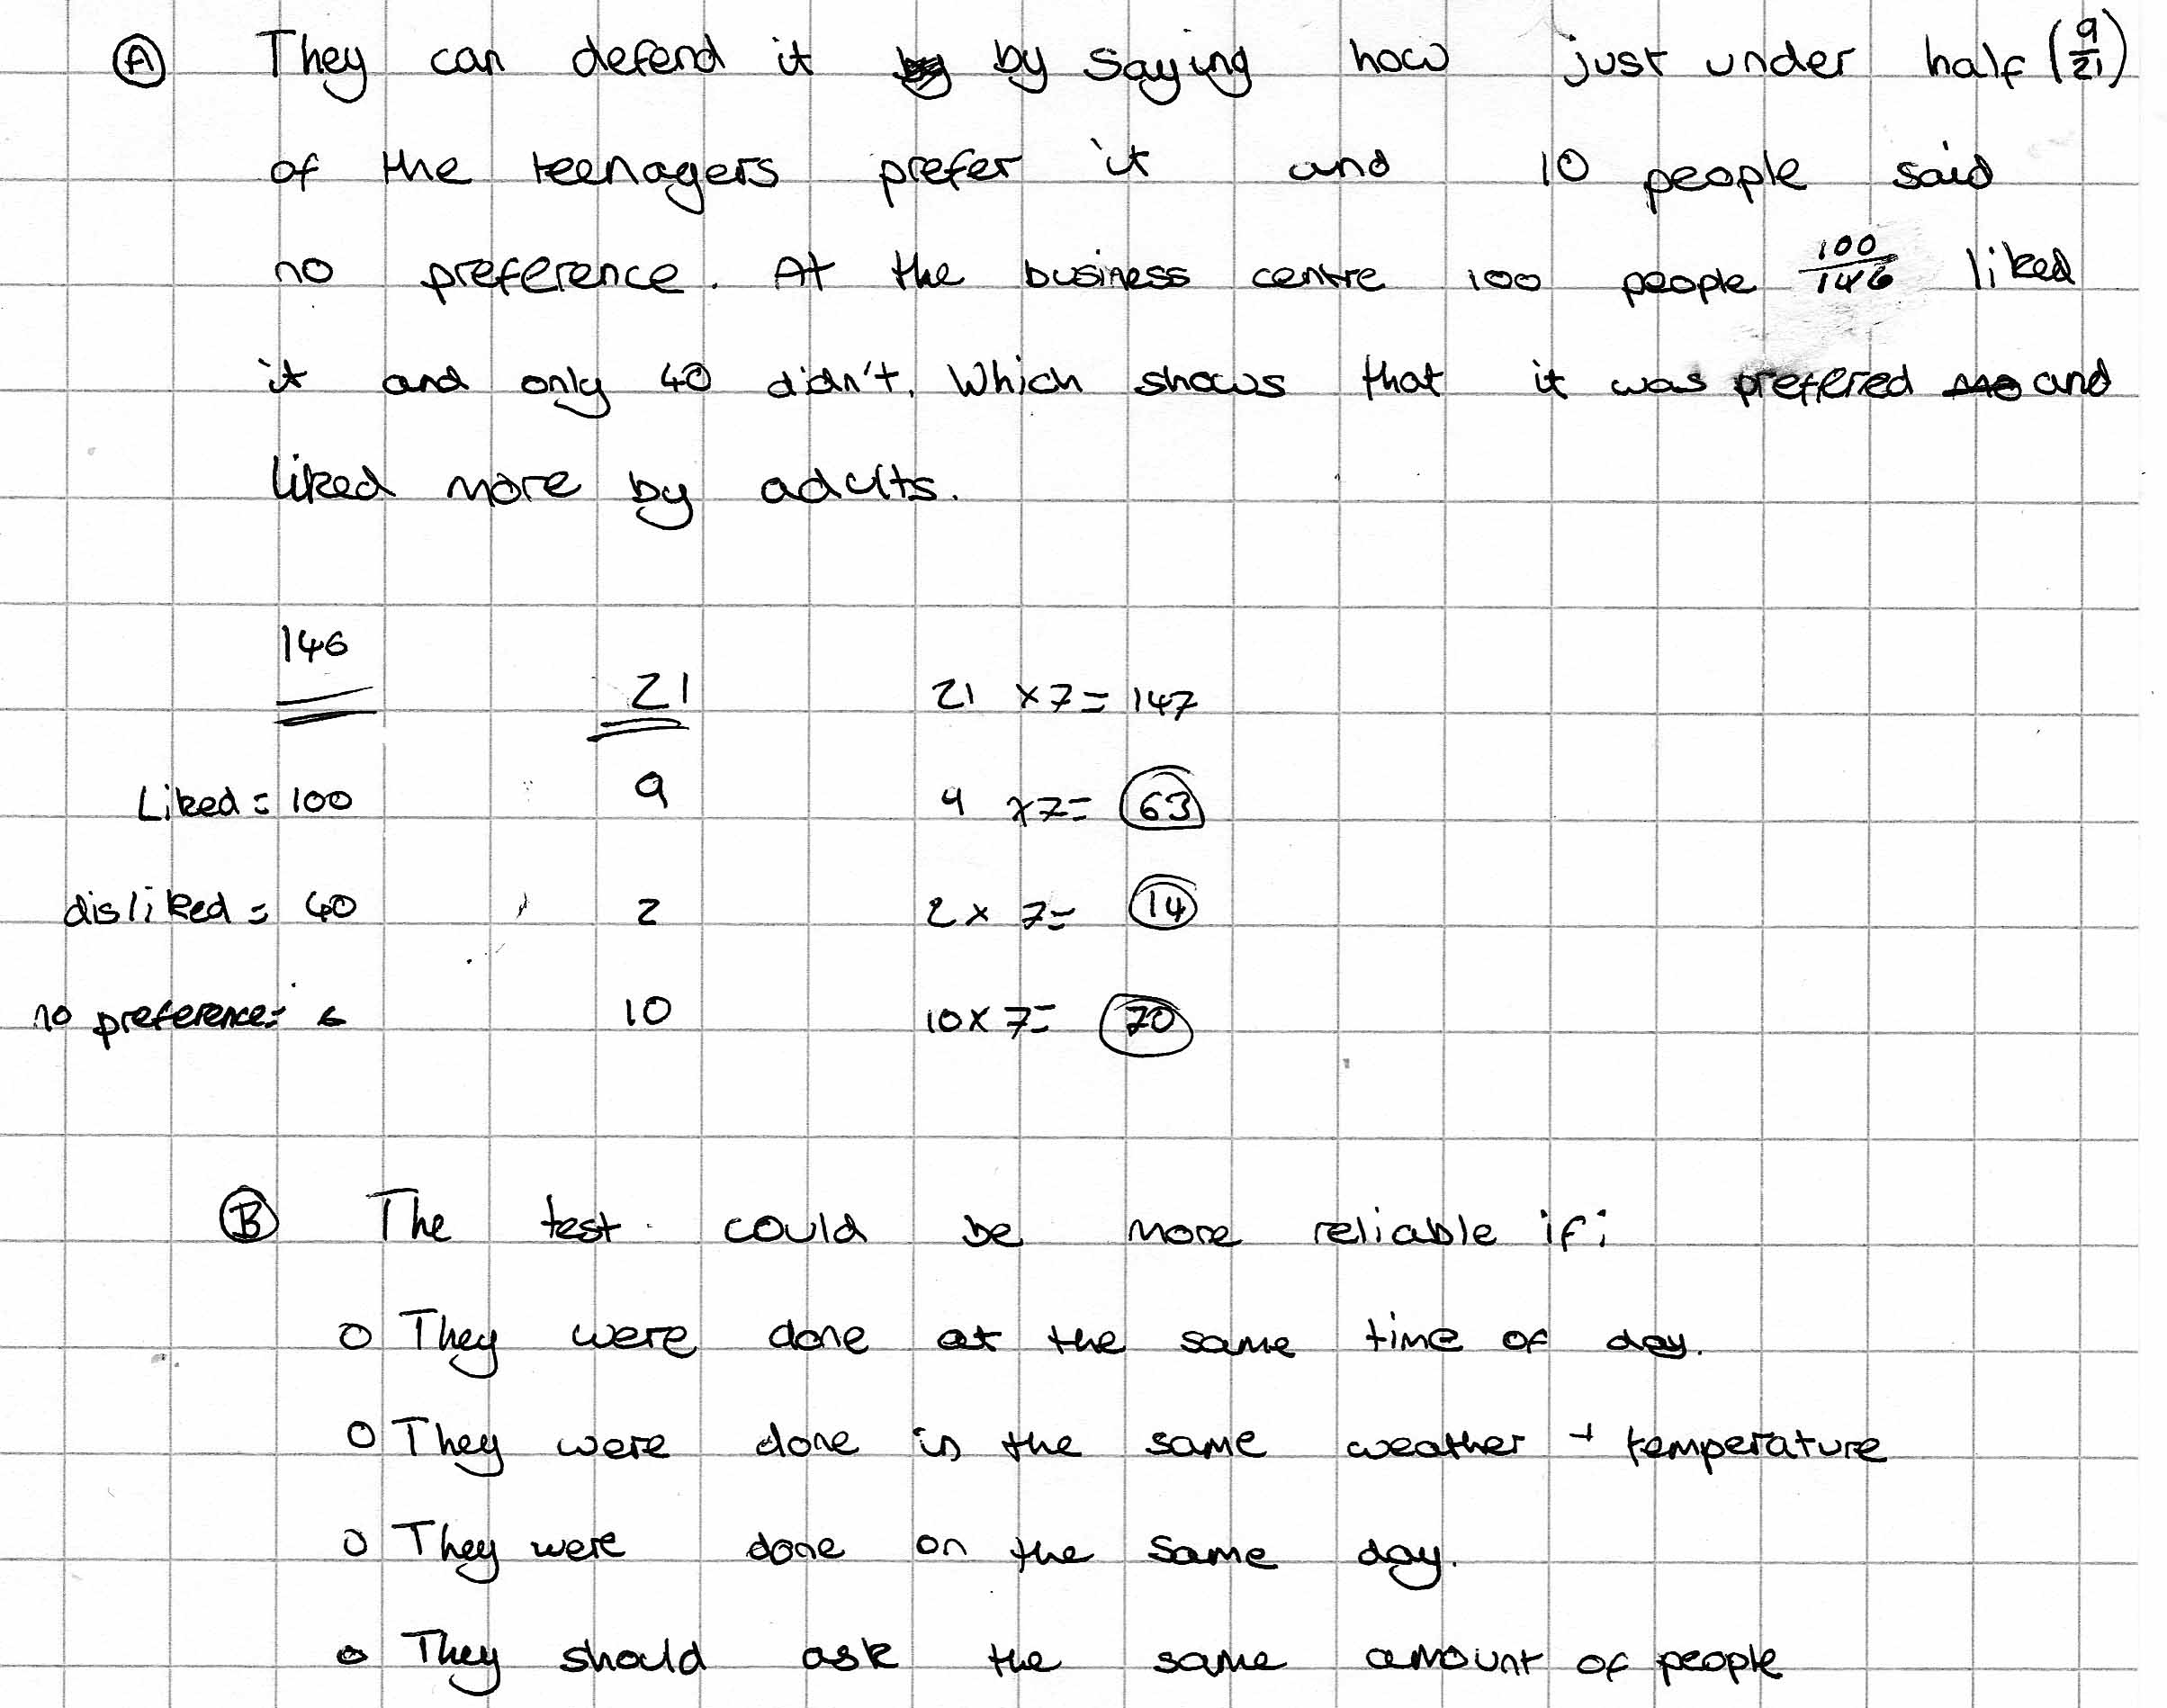 Ⓐ They can defend it by saying how just under half (9/21)
of the teenagers prefer it and 10 people said
no preference. At the business centre 100 people 100/146 liked
it and only 40 didn't. Which shows that it was preferred and
liked more by adults.
146 21 21 x7= 147
Liked = 100 9 9 x7= 63
disliked = 40 2 2 x 7= 14
no preference= 6 10 10 x 7= 70
Ⓑ The test could be more reliable if;
o They were done at the same time of day.
o They were done in the same weather + temperature
o They were done on the same day.
o They should ask the same amount of people